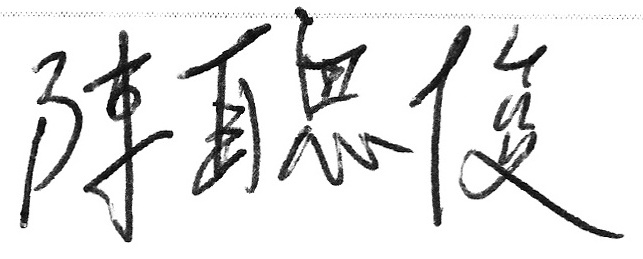 陳聰俊